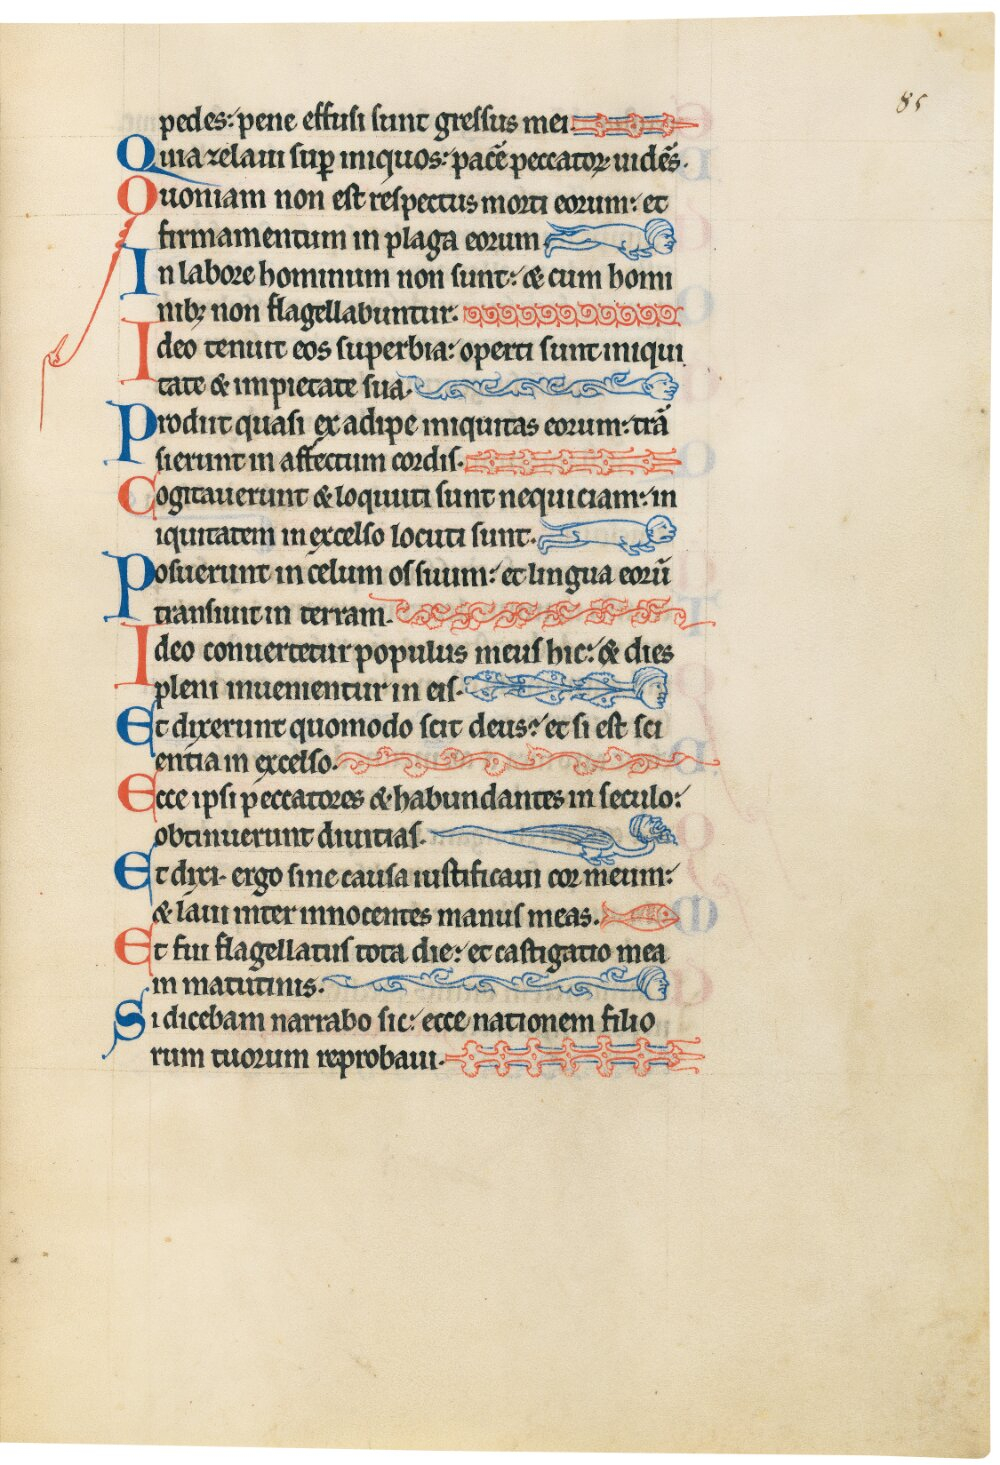 85
pedes: pene effusi sunt gressus mei
Quia zelaui sup̱ iniquos: pacē peccatorꝝ uidēs.
Quoniam non est respectus morti eorum: et
firmamentum in plaga eorum
In labore hominum non sunt: & cum homi
nibꝫ non flagellabuntur.
Ideo tenuit eos superbia: operti sunt iniqui
tate & impietate sua.
Prodiit quasi ex adipe iniquitas eorum: trā
sierunt in affectum cordis.
Cogitauerunt & loquuti sunt nequiciam: in
iquitatem in excelso locuti sunt.
Posuerunt in celum os suum: et lingua eorū
transiuit in terram.
Ideo conuertetur populus meus hic: & dies
pleni inuenientur in eis.
Et dixerunt quomodo scit deus: et si est sci
entia in excelso.
Ecce ipsi peccatores & habundantes in seculo:
obtinuerunt diuitias.
Et dixi. ergo sine causa iustificaui cor meum:
& laui inter innocentes manus meas.
Et fui flagellatus tota die: et castigatio mea
in matutinis.
Si dicebam narrabo sic: ecce nationem filio
rum tuorum reprobaui.